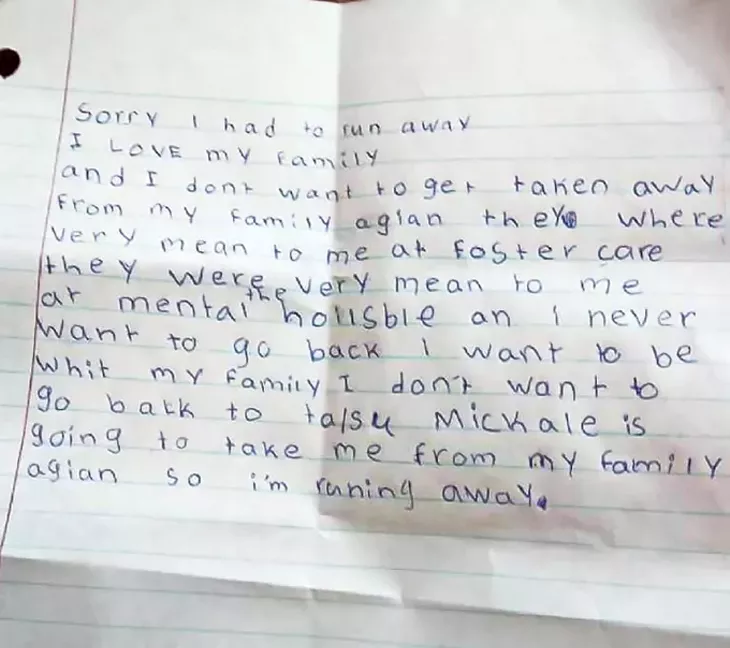 Sorry I had to run away
I LOVE my family
and I dont want to get taken away
from my family agian they where
very mean to me at foster care
they were very mean to me
at the mental holisble an i never
want to go back I want to be
whit my family I don't want to
go back to talsu Mickale is
going to take me from my family
agian so i'm runing away.